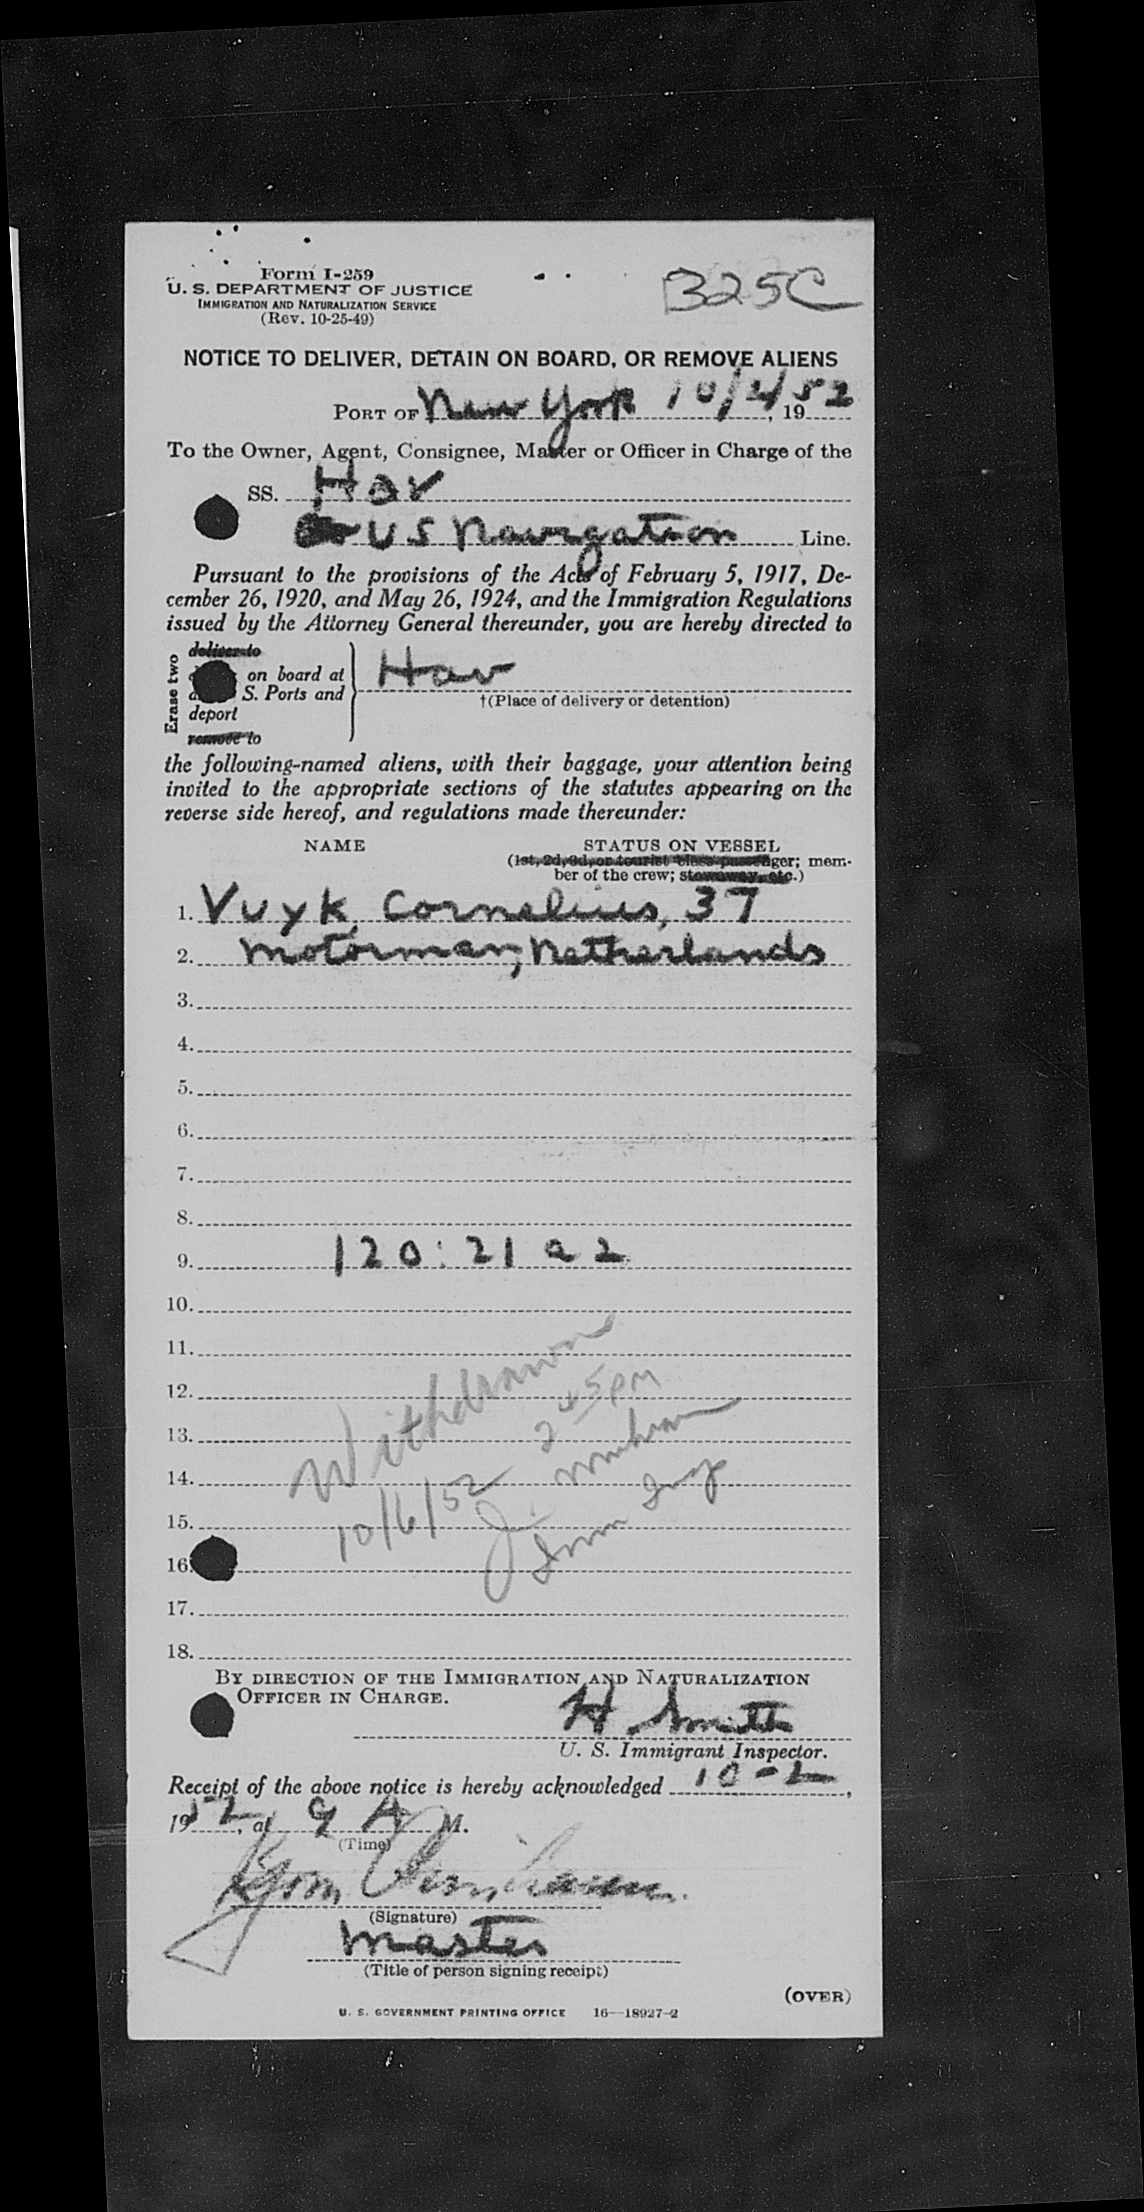 Form I-259
325C
U. S. DEPARTMENT OF JUSTICE
IMMIGRATION AND NATURALIZATION SERVICE
(Rev. 10-25-49)
NOTICE TO DELIVER, DETAIN ON BOARD, OR REMOVE ALIENS
PORT OF New York 10/2/, 1952
To the Owner, Agent, Consignee, Master or Officer in Charge of the
SS. Hav
US Navigation Line.
Pursuant to the provisions of the Acts of February 5, 1917, De-
cember 26, 1920, and May 26, 1924, and the Immigration Regulations
issued by the Attorney General thereunder, you are hereby directed to
Erase two
deliver to
on board at
S. Ports and
deport
remove to
Hav
†(Place of delivery or detention)
the following-named aliens, with their baggage, your attention being
invited to the appropriate sections of the statutes appearing on the
reverse side hereof, and regulations made thereunder:
NAME STATUS ON VESSEL
(1st, 2d, 3d, or tourist class passenger; mem-
ber of the crew; stowaway, etc.)
1. Vuyk, Cornelius, 37
2. Motorman, Netherlands
3.
4.
5.
6.
7.
8.
9. 120:21 a 2
10.
11.
12.
13.
14.
15.
16.
17.
18.
Withdrawn
10/6/52 2 45 PM
J.
Imm Insp
BY DIRECTION OF THE IMMIGRATION AND NATURALIZATION
OFFICER IN CHARGE.
H. Smith
U. S. Immigrant Inspector.
Receipt of the above notice is hereby acknowledged 10-2,
1952, at 9 A M.
(Time)
(Signature)
Master
(Title of person signing receipt)
(OVER)
U. S. GOVERNMENT PRINTING OFFICE 16—18927-2